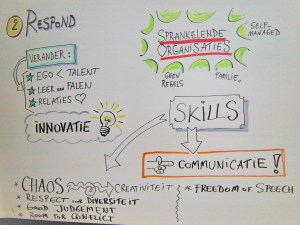 2 RESPOND
VERANDER:
★ EGO < TALENT
★ LEER van FALEN
★ RELATIES ♡
INNOVATIE
SPRANKELENDE
ORGANISATIES
SELF-
MANAGED
GEEN
REGELS
FAMILIE,
SKILLS
COMMUNICATIE!
CHAOS CREATIVITEIT
* RESPECT for DIVERSITEIT
* GOOD JUDGEMENT
* ROOM FOR CONFLICT
* FREEDOM OF SPEECH